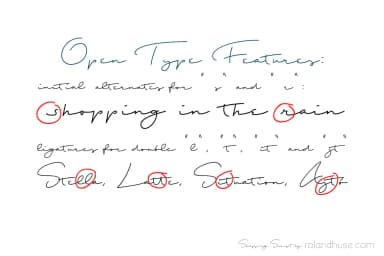 Open Type Features:
initial alternates for "s" and "r":
shopping in the rain
ligatures for double "l", "t", "it" and "gt"
Stella, Latte, Situation,
ralandhuse.com